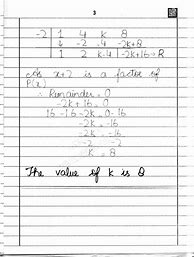 3
-2 | 1 4 k 8
↓ -2 -4 -2k+8
1 2 k-4 | -2k+16 → R
As x+2 is a factor of
P(x)
∴ Remainder = 0
-2k+16 = 0
16-16-2k = 0-16
-2k = -16
-2k = -16
-2 -2
k = 8
The value of k is 8